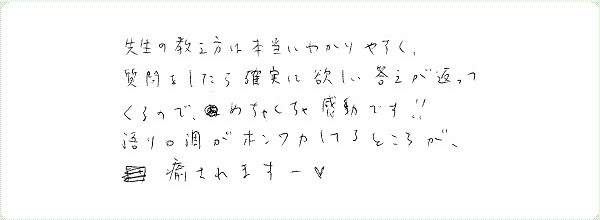 先生の教え方は本当にわかりやすく、
質問をしたら確実に欲しい答えが返って
くるので、めちゃくちゃ感動です!!
語り口調がホンワカしてるところが、
癒されますー♥